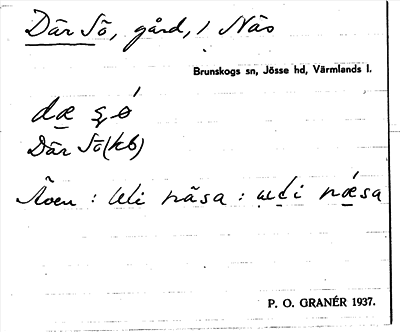 Där Sö, gård, i Näs
Brunskogs sn, Jösse hd, Värmlands l.
dæ ʂǿ
Där Sö (kb)
Även : uti näsa : ɯti nǽsa
P. O. GRANÉR 1937.